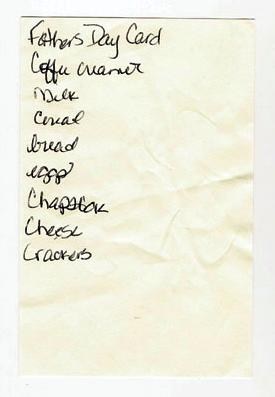 Fathers Day Card
Coffee creamer
Milk
Cereal
bread
eggs
Chapstick
Cheese
Crackers